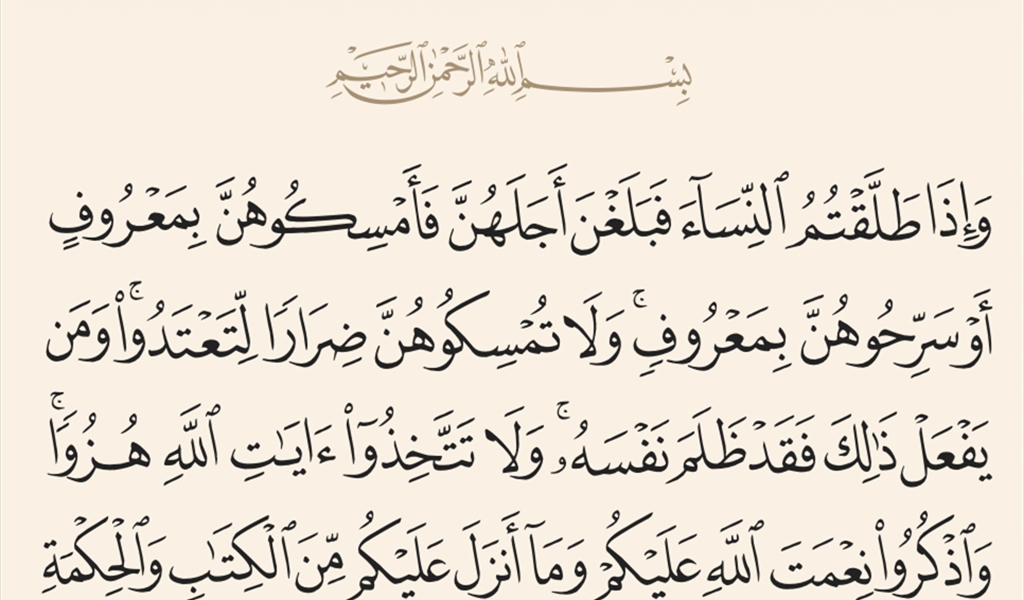 بِسْمِ ٱللَّهِ ٱلرَّحْمَٰنِ ٱلرَّحِيمِ
وَإِذَا طَلَّقْتُمُ ٱلنِّسَآءَ فَبَلَغْنَ أَجَلَهُنَّ فَأَمْسِكُوهُنَّ بِمَعْرُوفٍ
أَوْ سَرِّحُوهُنَّ بِمَعْرُوفٍۚ وَلَا تُمْسِكُوهُنَّ ضِرَارًا لِّتَعْتَدُوا۟ۚ وَمَن
يَفْعَلْ ذَٰلِكَ فَقَدْ ظَلَمَ نَفْسَهُۥۚ وَلَا تَتَّخِذُوٓا۟ ءَايَٰتِ ٱللَّهِ هُزُوًاۚ
وَٱذْكُرُوا۟ نِعْمَتَ ٱللَّهِ عَلَيْكُمْ وَمَآ أَنزَلَ عَلَيْكُم مِّنَ ٱلْكِتَٰبِ وَٱلْحِكْمَةِ